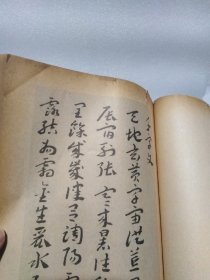 千字文
天地玄黃宇宙洪荒
辰宿列張寒来暑往
閏餘成歲律呂調陽
露結為霜金生麗水